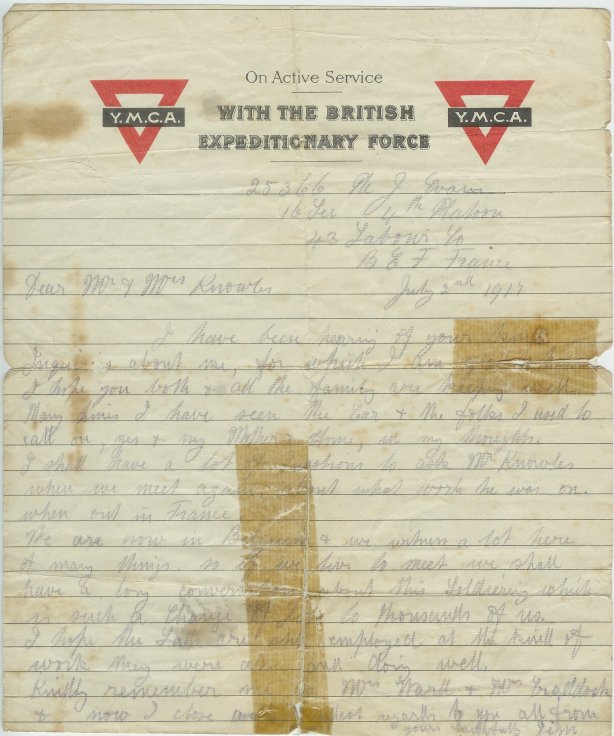 On Active Service
Y.M.C.A.
WITH THE BRITISH
EXPEDITIONARY FORCE
Y.M.C.A.
25366 Pte J. Evans
16 Sec 4th Platoon
43 Labour Co
B E F France
Dear Mr & Mrs Knowles July 2nd 1917
I have been hearing of your kind
about me, for which I am
I hope you both & all the family are keeping well
Many times I have seen the & the folks I used to
call on, yes & my Mother & Home, in my thoughts.
I shall have a lot of questions to ask Mr Knowles
when we meet again about what work he was on
when out in France
We are now in Belgium & we witness a lot here
of many things. so if we live to meet we shall
have a long conversation about this Soldiering which
is such a change of Life to thousands of us.
I hope the are still employed at the kind of
work they were at and doing well.
Kindly remember me to Mrs Ward & Mrs
& now I close with kindest regards to you all from
yours faithfully John